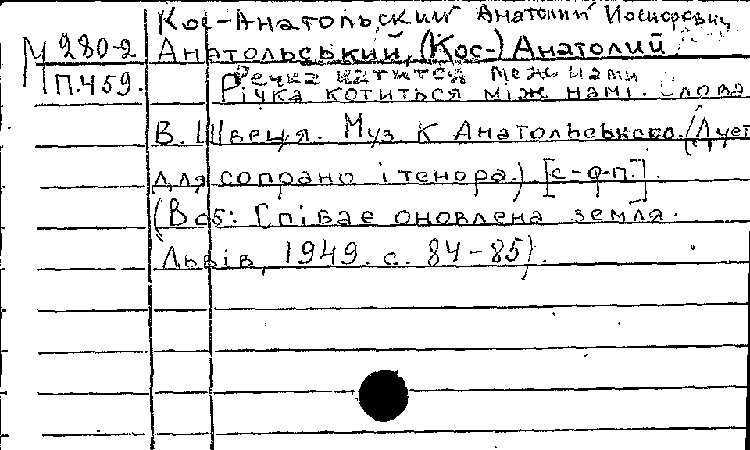 Кос-Анатольский Анатолий Иосифович
М 280-2 Анатольський, (Кос-) Анатолий
П.459. Речка катится меж нами
Річка котиться між намі. Слова
В. Швеця. Муз К Анатольського. (Дует
для сопрано і тенора.) [с-ф-п.]
(В сб: Співае оновлена земля.
Львів, 1949. с. 84-85).